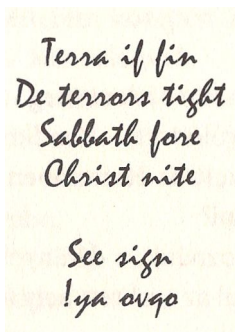 Terra if fin
De terrors tight
Sabbath fore
Christ nite

See sign
!ya ovqo